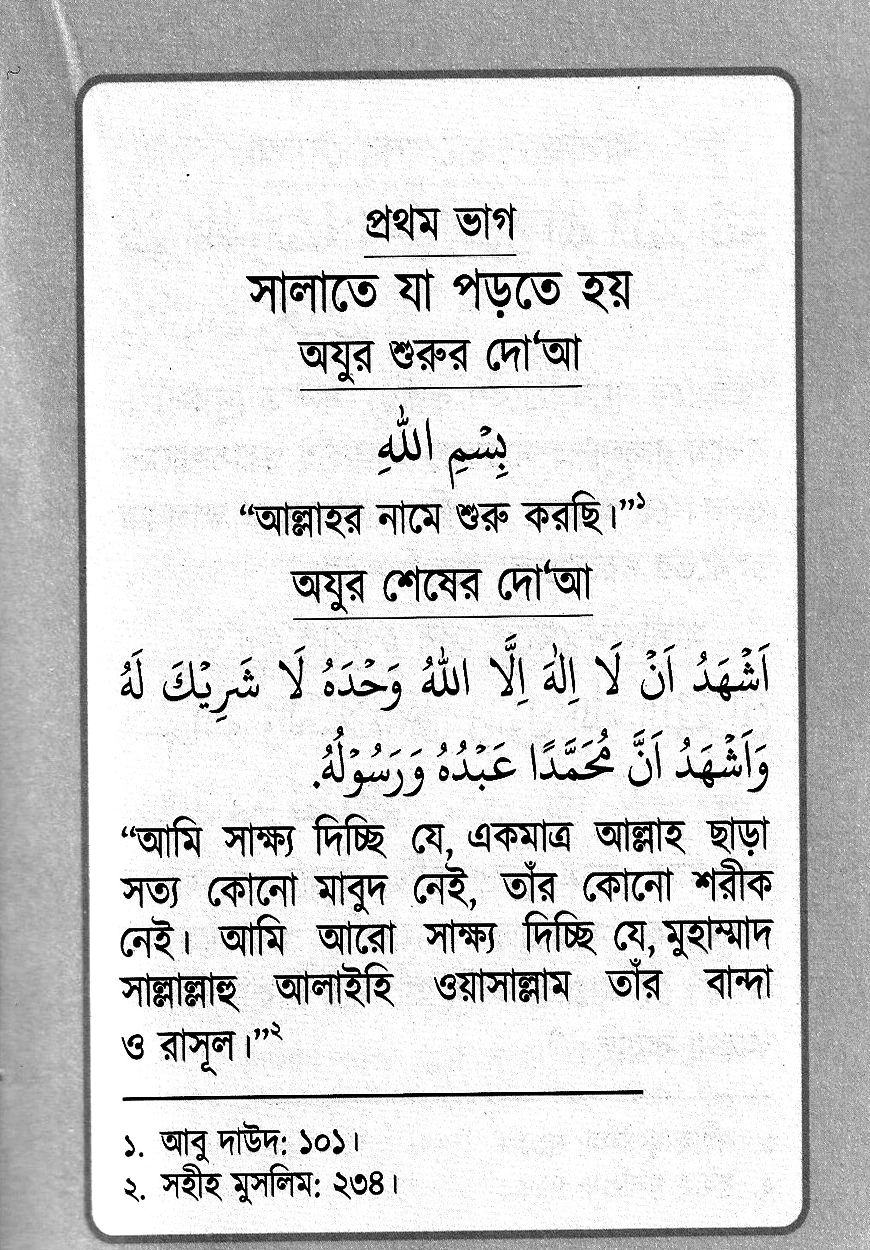 প্রথম ভাগ
সালাতে যা পড়তে হয়
অযুর শুরুর দো‘আ
بِسْمِ اللهِ
“আল্লাহর নামে শুরু করছি।”১
অযুর শেষের দো‘আ
اَشْهَدُ اَنْ لَا اِلٰهَ اِلَّا اللهُ وَحْدَهُ لَا شَرِيْكَ لَهُ
وَاَشْهَدُ اَنَّ مُحَمَّدًا عَبْدُهُ وَرَسُوْلُهُ.
“আমি সাক্ষ্য দিচ্ছি যে, একমাত্র আল্লাহ ছাড়া
সত্য কোনো মাবুদ নেই, তাঁর কোনো শরীক
নেই। আমি আরো সাক্ষ্য দিচ্ছি যে, মুহাম্মাদ
সাল্লাল্লাহু আলাইহি ওয়াসাল্লাম তাঁর বান্দা
ও রাসূল।”২
১. আবু দাউদ: ১০১।
২. সহীহ মুসলিম: ২৩৪।